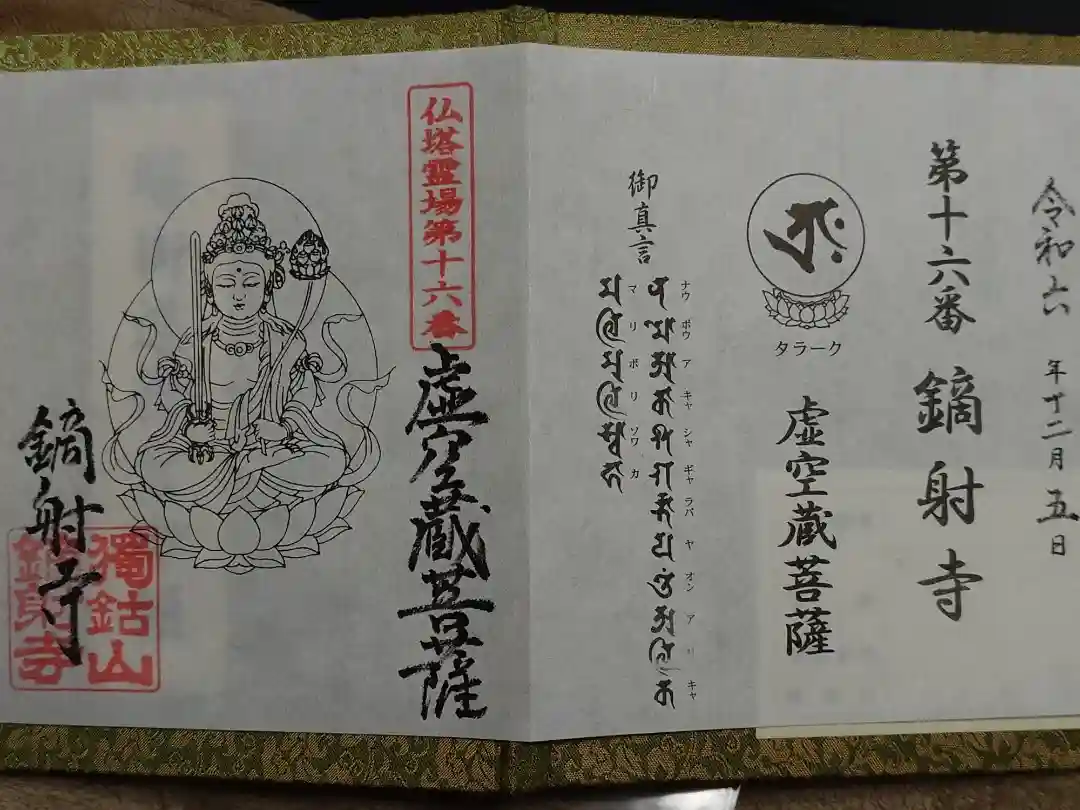 令和六年十二月五日
第十六番 鏑射寺
タラーク
虚空蔵菩薩
御真言
ナウ ボウ ア キャ シャ ギャ ラバ ヤ オン ア リ キャ
マ リ ボ リ ソワ カ
仏塔霊場第十六番
虚空蔵菩薩
鏑射寺
獨鈷山
鏑射寺